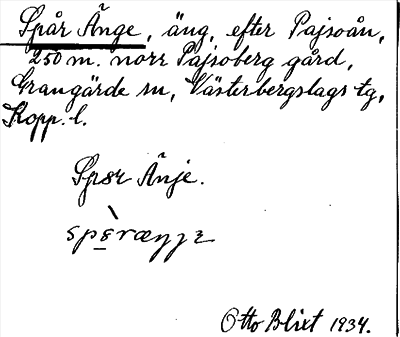 Spår Änge, äng, efter Pajsoån,
250 m. norr Pajsoberg gård,
Grangärde sn, Västerbergslags tg,
Kopp. l.
Spår Änje.
Otto Blixt 1934.